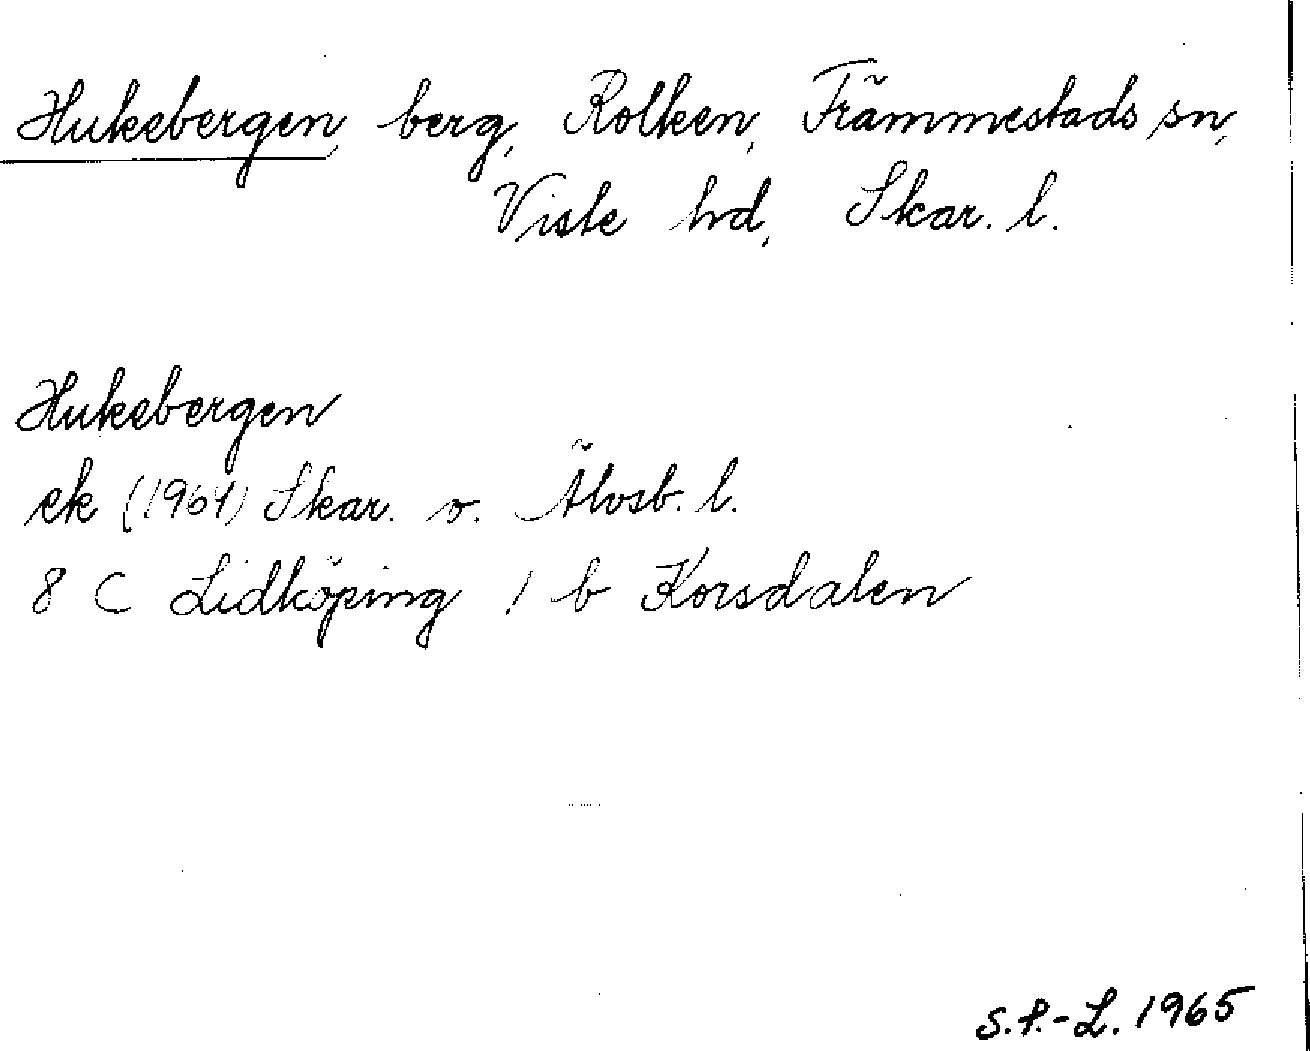 Hukebergen, berg, Rolken, Främmestads sn,
Viste hd, Skar. l.
Hukebergen
ek (1964) Skar. o. Älvsb. l.
8 C Lidköping 1 b Korsdalen
S.P.-L. 1965